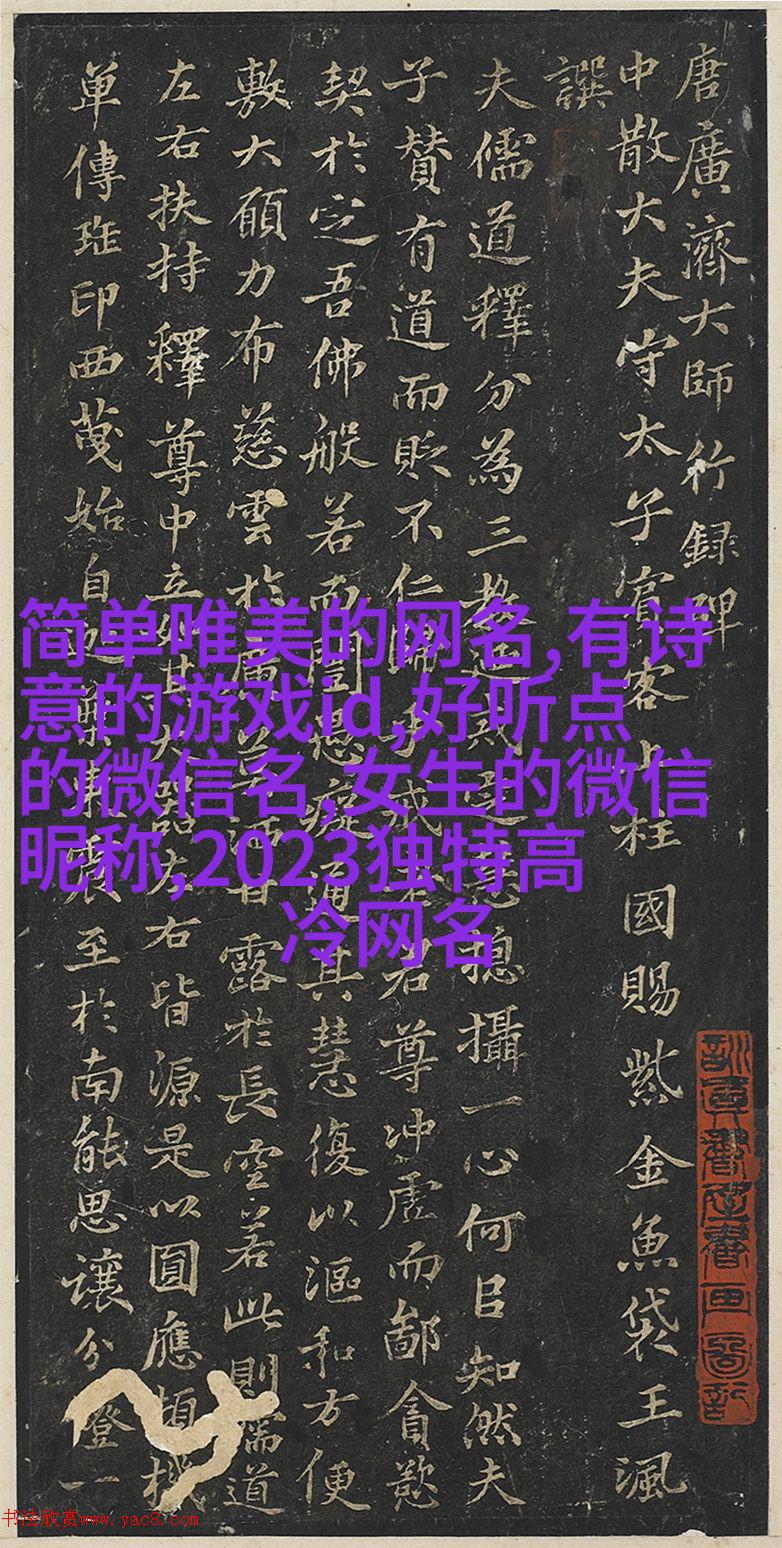 唐廣濟大師行録碑
中散大夫守太子賓客上柱國賜紫金魚袋王諷
譔
夫儒道釋分為三教攝一心何以知然夫
子贊有道而貶不仁君尊冲虛而鄙貪慾
契於定吾佛般若而闡愚癡其慧復以漚和方便
敷大願力布慈雲於廣甘露於長空若此則儒道
左右扶持釋尊中立左右皆源是以圓應頓機
單傳班印西茂始自至於南能思讓分燈一
简单唯美的网名,有诗
意的游戏id,好听点
的微信名,女生的微信
昵称,2023独特高
冷网名
书法欣赏www.yac8.com